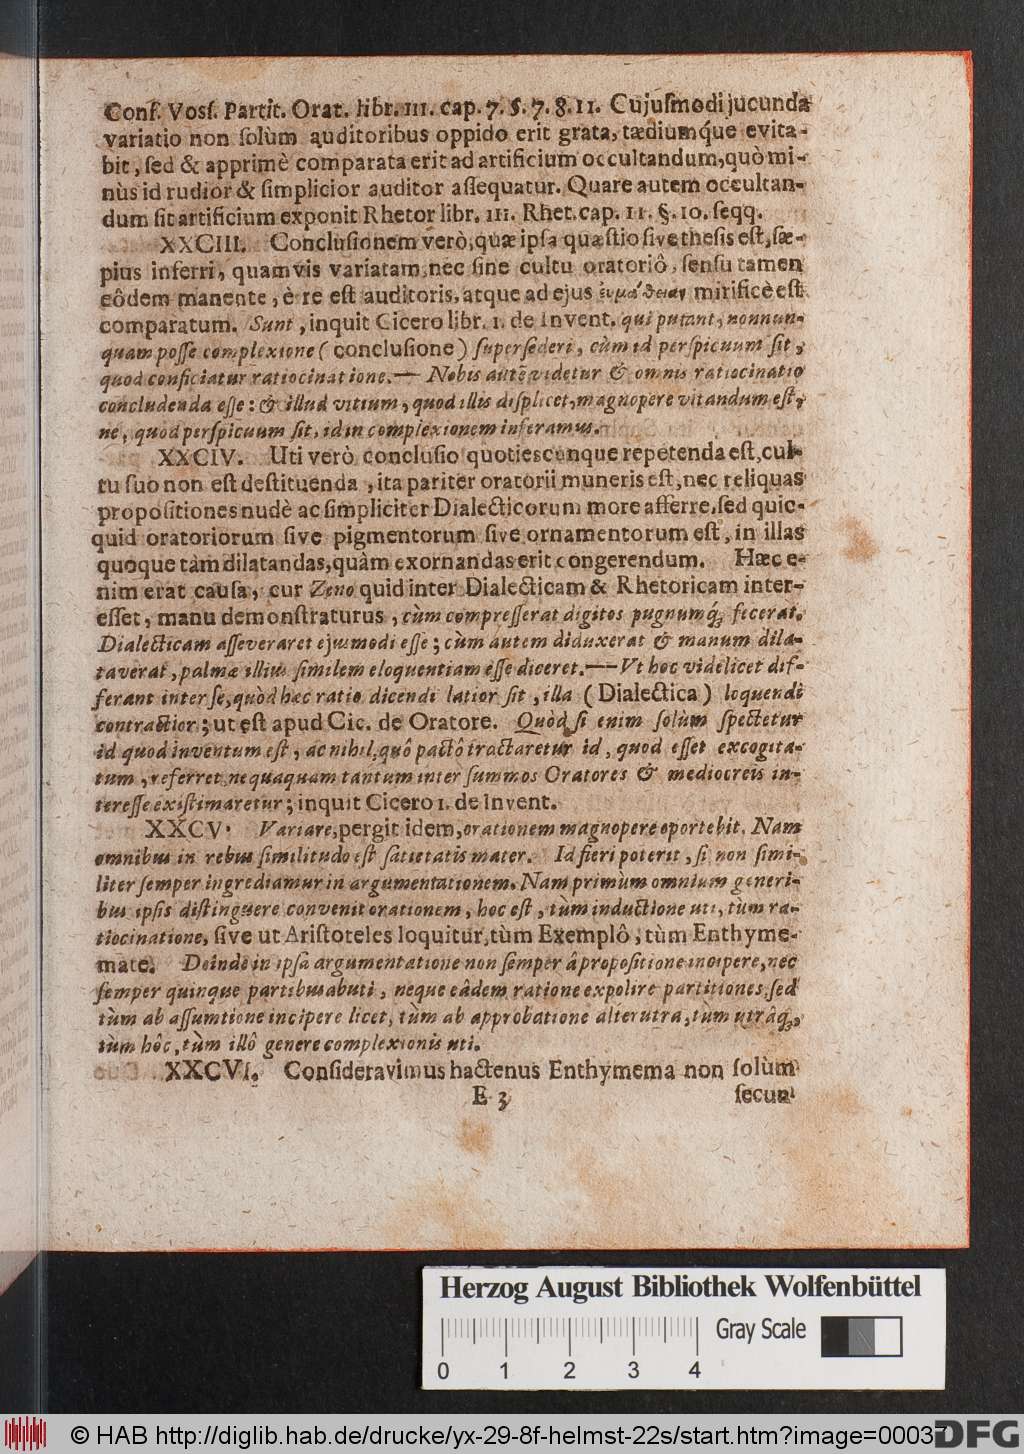 Conſ. Voſſ. Partit. Orat. libr. III. cap. 7. §. 7. 8. 11. Cujuſmodi jucunda
variatio non ſolùm auditoribus oppido erit grata, tædiumq́ue evita-
bit, ſed & apprimè comparata erit ad artificium occultandum, quò mi-
nùs id rudior & ſimplicior auditor aſſequatur. Quare autem occultan-
dum ſit artificium exponit Rhetor libr. III. Rhet. cap. 11. §. 10. ſeqq.
XXCIII. Concluſionem verò, quæ ipſa quæſtio ſive theſis eſt, ſæ-
pius inferri, quamvis variatam, nec ſine cultu oratoriô, ſenſu tamen
eôdem manente, è re eſt auditoris, atque ad ejus mirificè eſt
comparatum. Sunt, inquit Cicero libr. 1. de Invent. qui putant, nonnun-
quam poſſe complexione (concluſione) ſuperſederi, cùm id perſpicuum ſit,
quod conficiatur ratiocinatione.— Nobis autē videtur & omnis ratiocinatio
concludenda eſſe: & illud vitium, quod illis diſplicet, magnopere vitandum eſt,
ne, quod perſpicuum ſit, id in complexionem inferamus.
XXCIV. Uti verò concluſio quotiescunque repetenda eſt, cul-
tu ſuo non eſt deſtituenda, ita pariter oratorii muneris eſt, nec reliquas
propoſitiones nudè ac ſimpliciter Dialecticorum more afferre, ſed quic-
quid oratoriorum ſive pigmentorum ſive ornamentorum eſt, in illas
quoque tàm dilatandas, quàm exornandas erit congerendum. Hæc e-
nim erat cauſa, cur Zeno quid inter Dialecticam & Rhetoricam inter-
eſſet, manu demonſtraturus, cùm compreſſerat digitos pugnumq́; fecerat,
Dialecticam aſſeveraret ejusmodi eſſe; cùm autem diduxerat & manum dila-
taverat, palmæ illius ſimilem eloquentiam eſſe diceret.—— Ut hoc videlicet dif-
ferant inter ſe, quòd hæc ratio dicendi latior ſit, illa (Dialectica) loquendi
contractior; ut eſt apud Cic. de Oratore. Quòd ſi enim ſolùm ſpectetur
id quod inventum eſt, ac nihil, quô pactô tractaretur id, quod eſſet excogita-
tum, referret, nequaquam tantum inter ſummos Oratores & mediocreis in-
tereſſe exiſtimaretur; inquit Cicero 1. de Invent.
XXCV. Variare, pergit idem, orationem magnopere oportebit. Nam
omnibus in rebus ſimilitudo eſt ſatietatis mater. Id fieri poterit, ſi non ſimi-
liter ſemper ingrediamur in argumentationem. Nam primùm omnium generi-
bus ipſis diſtinguere convenit orationem, hoc eſt, tùm inductione uti, tùm ra-
tiocinatione, ſive ut Ariſtoteles loquitur, tùm Exemplô, tùm Enthyme-
mate. Deinde in ipſa argumentatione non ſemper â propoſitione incipere, nec
ſemper quinque partibus abuti, neque eâdem ratione expolire partitiones, ſed
tùm ab aſſumtione incipere licet, tùm ab approbatione alterutra, tùm utrâq́;,
tùm hôc, tùm illô genere complexionis uti.
XXCVI. Conſideravimus hactenus Enthymema non ſolùm
E 3 ſecun-
Herzog August Bibliothek Wolfenbüttel
Gray Scale
0 1 2 3 4
© HAB http://diglib.hab.de/drucke/yx-29-8f-helmst-22s/start.htm?image=00037
DFG